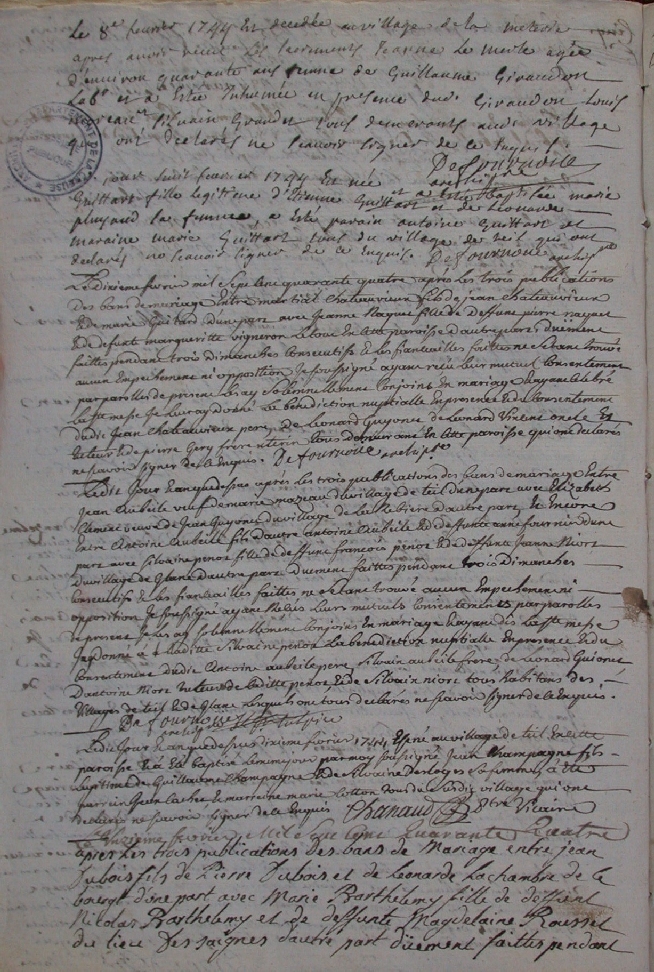 Le 8e fevrier 1744 Est decedée au village de la meterie
apres avoir receu Les sacrements Jeanne Le merle agée
d'environ quarante ans femme de Guillaume Giraudon
Lab.r et a Esté Inhumée en presence dud. Giraudon Louis
Silvain Grandet tous demeurants audt village
qui ont declarés ne scavoir signer de ce Enquis.
De fournoue
jour huit fevrier 1744 Est née et a esté Baptisée marie
Guittart fille legitime d'Etienne Guittart et de Leonarde
plusaud sa femme, a esté parain antoine Guittart et
maraine marie Guittart tous du village de teil qui ont
declarés ne scavoir signer de ce Enquis De fournoue archip.tre
Le dixieme fevrier mil sept cent quarante quatre après les trois publications
des bans de mariage Entre martial Chateauvieux fils de jean Chateauvieux
Et de marie Guitard d'une part avec Jeanne naquet fille de deffunt pierre naquet
Et de defunte margueritte vigneron Le tout En cette paroisse d'autre part, duement
faittes pendant trois dimanches Consecutifs Et les fiancailles faittes ne s'étant trouvé
aucun Empechement ni opposition Je soussigné ayant reçu Leur mutuel Consentement
par parolles de present Les ay solennellement Conjoint En mariage Et ayant Celebré
La ste messe Je leur ay donné La benediction nuptialle En presence Et du Consentement
dudit Jean Chateauvieux pere, de Leonard Guyonnet de Leonard Vincent oncle Et
tuteur Et de pierre Gery frere uterin tous demeurant En cette paroisse qui ont declarés
ne scavoir signer de ce Enquis. De fournoue archiptre
Ledit Jour Et an que dessus après les trois publications des bans de mariage Entre
Jean aubeile veuf de marie mazeau du village de teil d'une part avec Elizabeth
Clement veuve de Jean Guyonet du village de la Ribiere d'autre part, Et Encore
Entre Antoine aubeile fils d'autre Antoine aubeile Et de deffunte anne fournier d'une
part avec Silvaine penot fille de deffunt francois penot Et de deffunte Jeanne Niort
du village de Glane d'autre part duement faittes pendant trois Dimanches
Consecutifs Et les fiancailles faittes ne s'étant trouvé aucun Empechement ni
opposition Je soussigné ayant Reçus Leurs mutuels Consentements par parolles
de present Je les ay solennellement Conjoints En mariage Et ayant dit La ste messe
Jay donné a Laditte Silvaine penot La benediction nuptialle En presence Et du
Consentement dudit Antoine aubeile pere, Silvain aubeile frere, de Leonard Guionet
D'antoine Niort tuteur de laditte penot Et de Silvain niort tous habitans des
Villages de teil Et de Glane Lesquels ont tous declarés ne scavoir signer de ce Enquis.
De fournoue
Ledit Jour Et an que dessus dixieme fevrier 1744 Est né au village de teil En cette
paroisse Et a Eté baptisé Le meme jour par moy soussigné Jean Champagne fils
Legitime de Guillaume Champagne Et de Silvaine Desloges sa femme, a été
parrain Jean et marraine marie Cotton tous dudit village qui ont
declaré ne scavoir signer de ce Enquis Chanaud Ptre Vicaire
Le Unzieme fevrier Mil Sept Cent Quarante Quatre
apres Les trois publications des bans de Mariage entre jean
Dubois fils de Pierre Dubois et de Leonarde Lachambre de le
bourgt d'une part avec Marie Barthelemy fille de deffunt
Nicolas Barthelemy et de deffunte Magdelaine Roussel
du lieu des saignes d'autre part düement faittes pendant